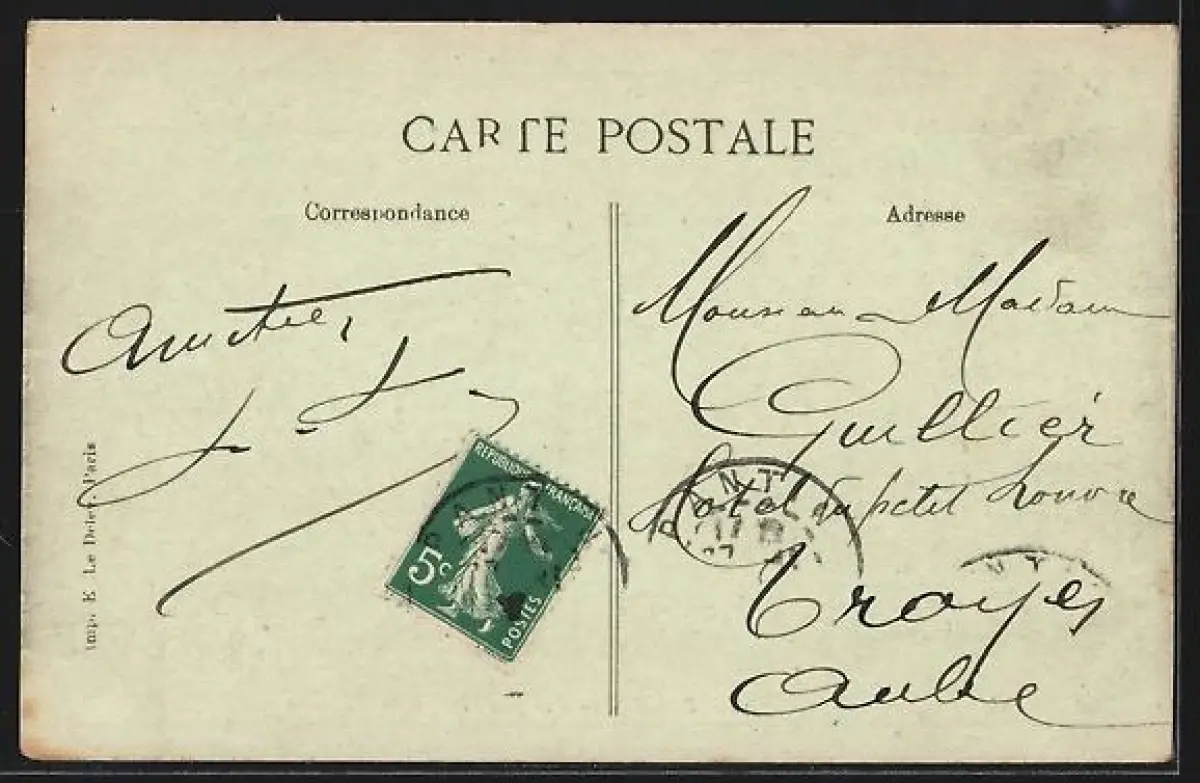 CARTE POSTALE
Correspondance
Adresse
Amitiés
Monsieur Madame
Guillier
Hotel du petit Louvre
Troyes
Aube
RÉPUBLIQUE FRANÇAISE
5c
POSTES
Imp. E. Le Deley, Paris